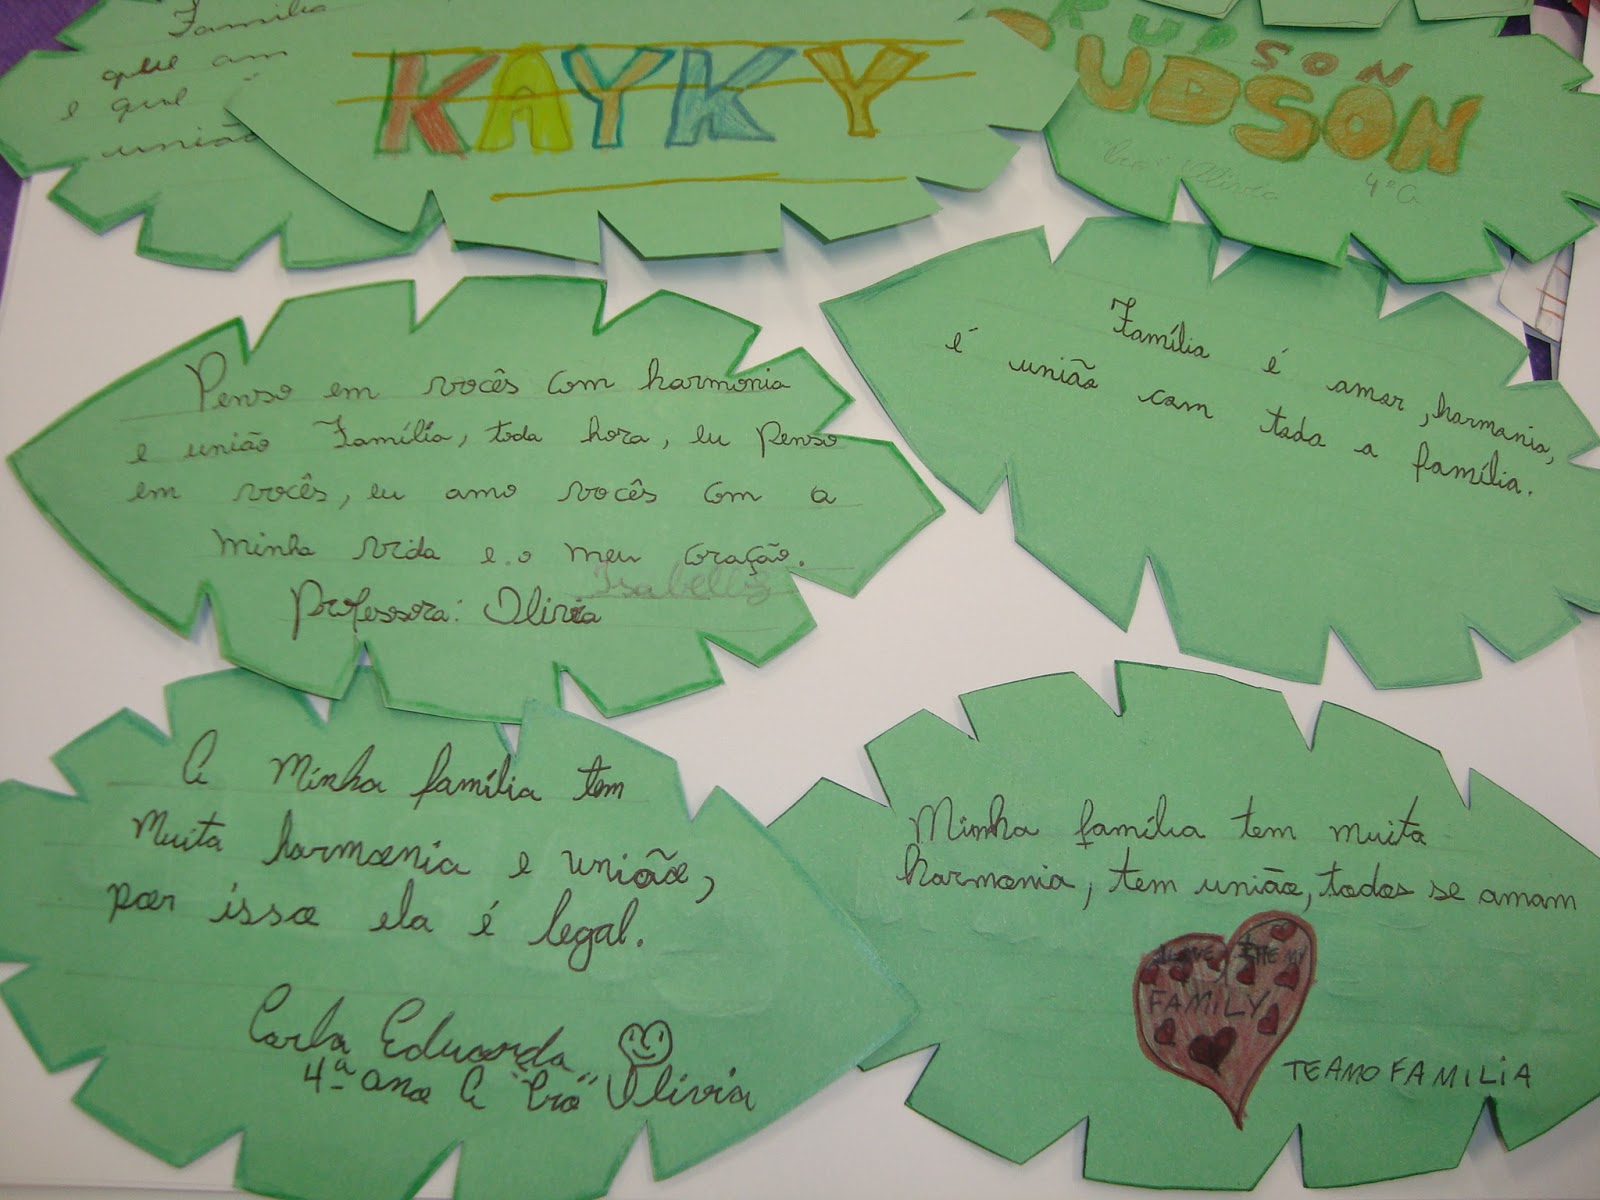 Família
que am
e que
união
KAYKY
RUDSON
UDSON
"Pro" Olivia
4º A
Penso em vocês com harmonia
e união Família, toda hora, eu penso
em vocês, eu amo vocês com a
minha vida e.o meu coração.
Isabelly
Professora: Olivia
Família é amor, harmonia,
é união com toda a família.
A Minha família tem
Muita harmonia e união,
por isso ela é legal.
Carla Eduarda
4ª ano A "Pro" Olivia
Minha família tem muita
harmonia, tem união, todos se amam
I LOVE THE MY
FAMILY
TE AMO FAMILIA